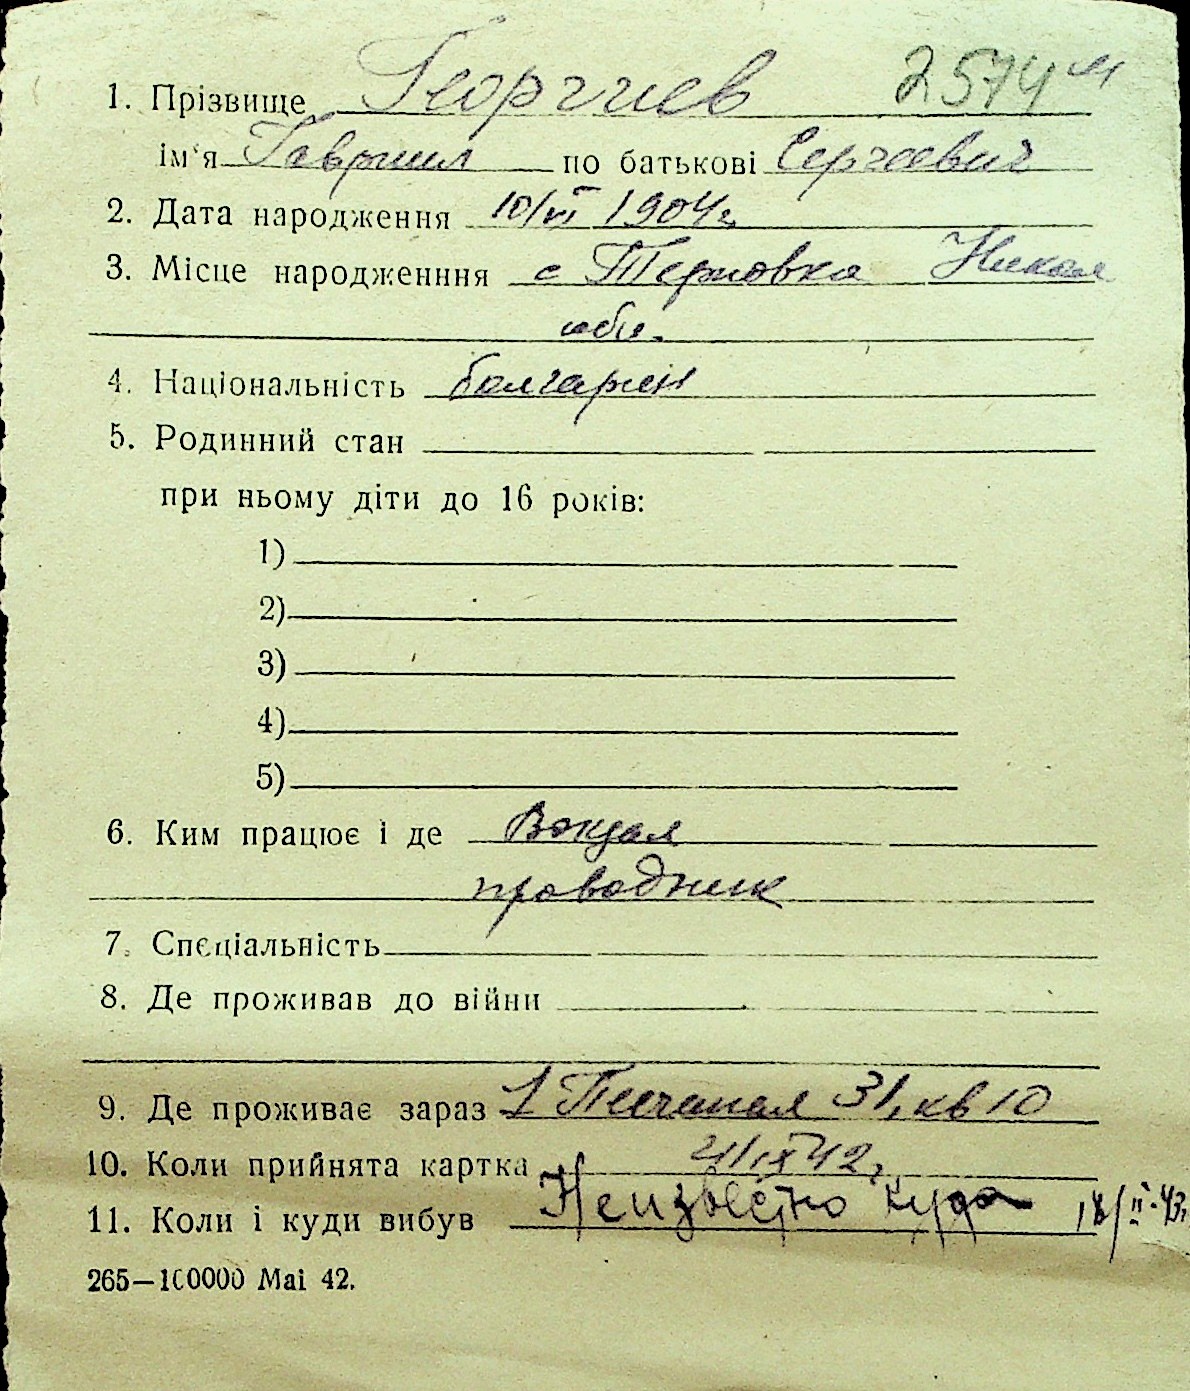 1. Прізвище Георгиев 2574
ім'я Гавриил по батькові Сергеевич
2. Дата народження 10/VI 1904 г.
3. Місце народженння с Терновка Никол
обл.
4. Національність болгарин
5. Родинний стан
при ньому діти до 16 років:
1)
2)
3)
4)
5)
6. Ким працює і де Вокзал
проводник
7. Спєціальність
8. Де проживав до війни
9. Де проживає зараз 1 Песчаная 31, кв 10
10. Коли прийнята картка IX 42 г.
11. Коли і куди вибув Неизвестно куда 18/II-43.
265—100000 Mai 42.